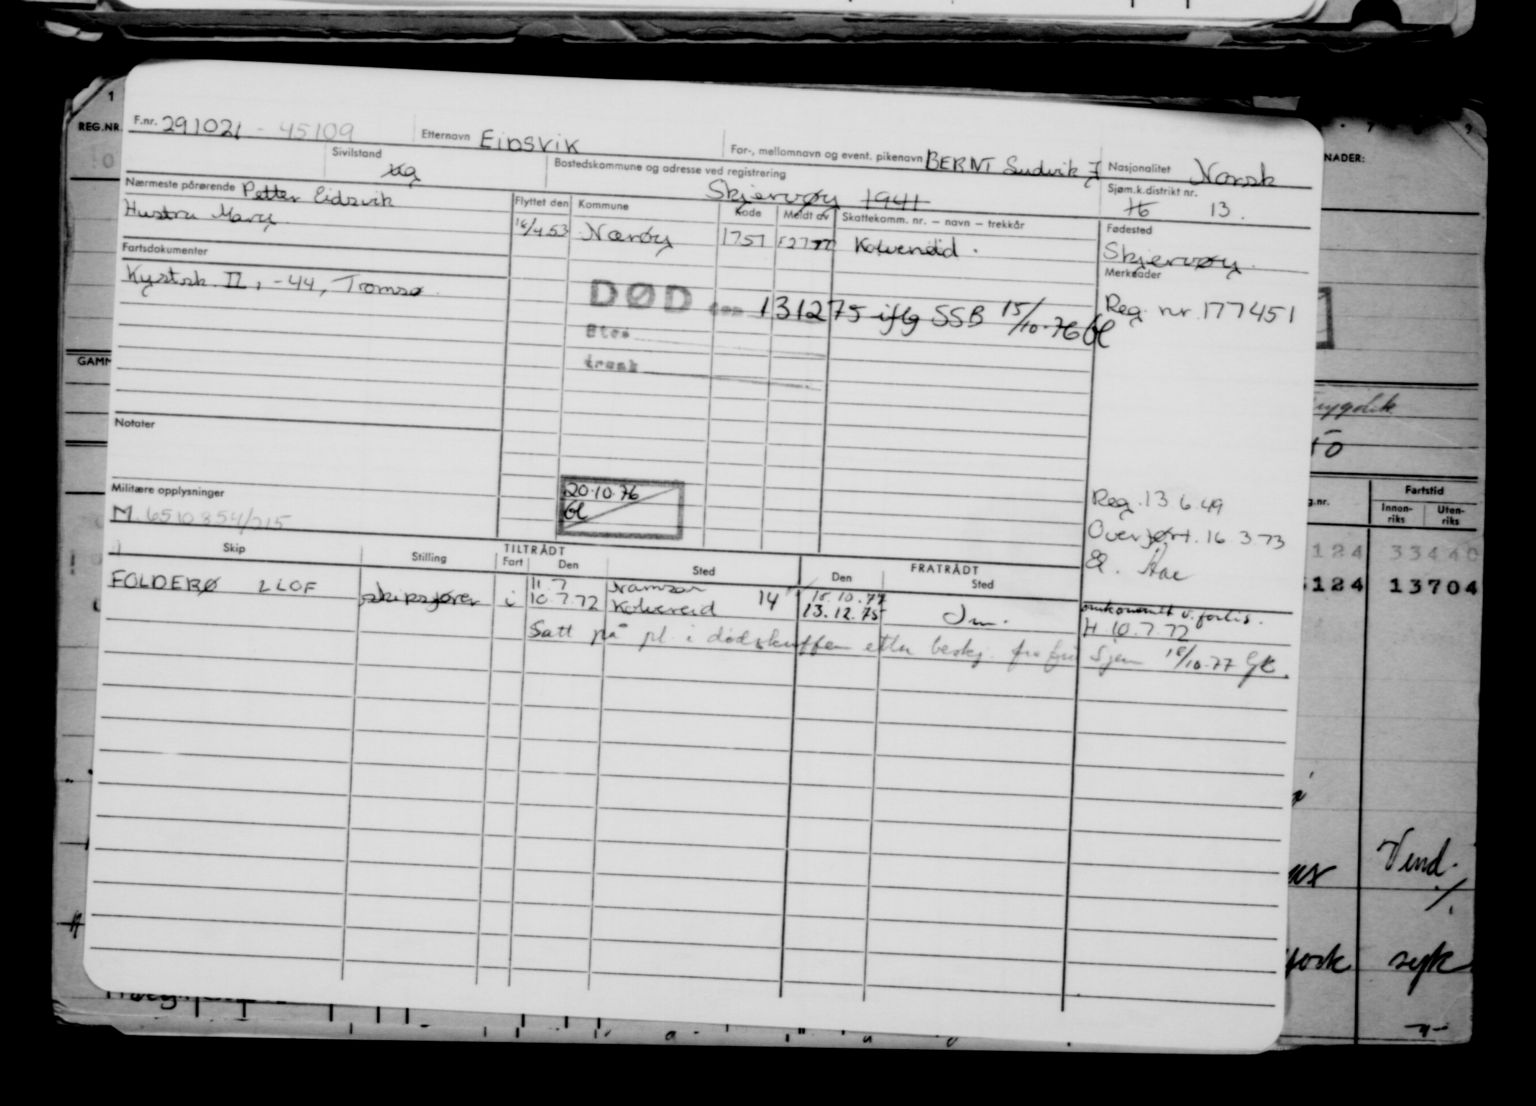 F.nr. 291021 - 45109 Etternavn EIDSVIK For-, mellomnavn og event. pikenavn BERNT Ludvik J Nasjonalitet Norsk
Sivilstand ug Bostedskommune og adresse ved registrering Skjervøy 1941 Sjøm.k.distrikt nr. 13.
Nærmeste pårørende Petter Eidsvik
Hustru Mary
Flyttet den Kommune Kode Meldt av Skattekomm. nr. – navn – trekkår
16/4.53 Nærøy 1751 Kolvereid.
Fødested
Skjervøy.
Fartsdokumenter
Kystsk. II, -44, Tromsø.
Merknader
Reg. nr. 177451
DØD den 131275 iflg SSB 15/10.76
Notater
Militære opplysninger
M. 6510854/215
20.10.76
Reg. 13 6.49
Overført. 16 3.73
Skip Stilling TILTRÅDT Fart Den Sted FRATRÅDT Den Sted
11.7 Namsos
FOLDERØ LLOF skipsfører i 10.7.72 Kolvereid 14 13.12.75 v. forlis.
H 10.7.72
Satt på pl. i dødskuffen etter beskj. fra 18/10.77
1
REG.NR.
NADER:
GAMM
g.nr. Fartstid
Innen-riks Uten-riks
124 33440
124 13704
Vend.
syk